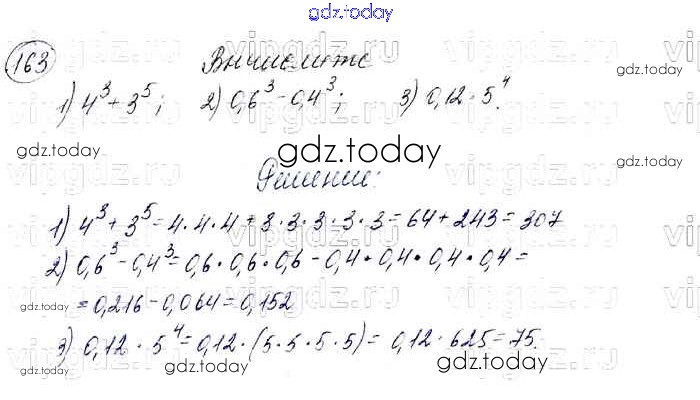 gdz.today
163 Вычислите
1) 4³ + 3⁵; 2) 0,6³ - 0,4³; 3) 0,12 · 5⁴.
gdz.today
gdz.today
gdz.today
gdz.today
gdz.today
Решение:
1) 4³ + 3⁵ = 4 · 4 · 4 + 3 · 3 · 3 · 3 · 3 = 64 + 243 = 307
2) 0,6³ - 0,4³ = 0,6 · 0,6 · 0,6 - 0,4 · 0,4 · 0,4 · 0,4 =
= 0,216 - 0,064 = 0,152
gdz.today
gdz.today
3) 0,12 · 5⁴ = 0,12 · (5 · 5 · 5 · 5) = 0,12 · 625 = 75.
gdz.today
gdz.today